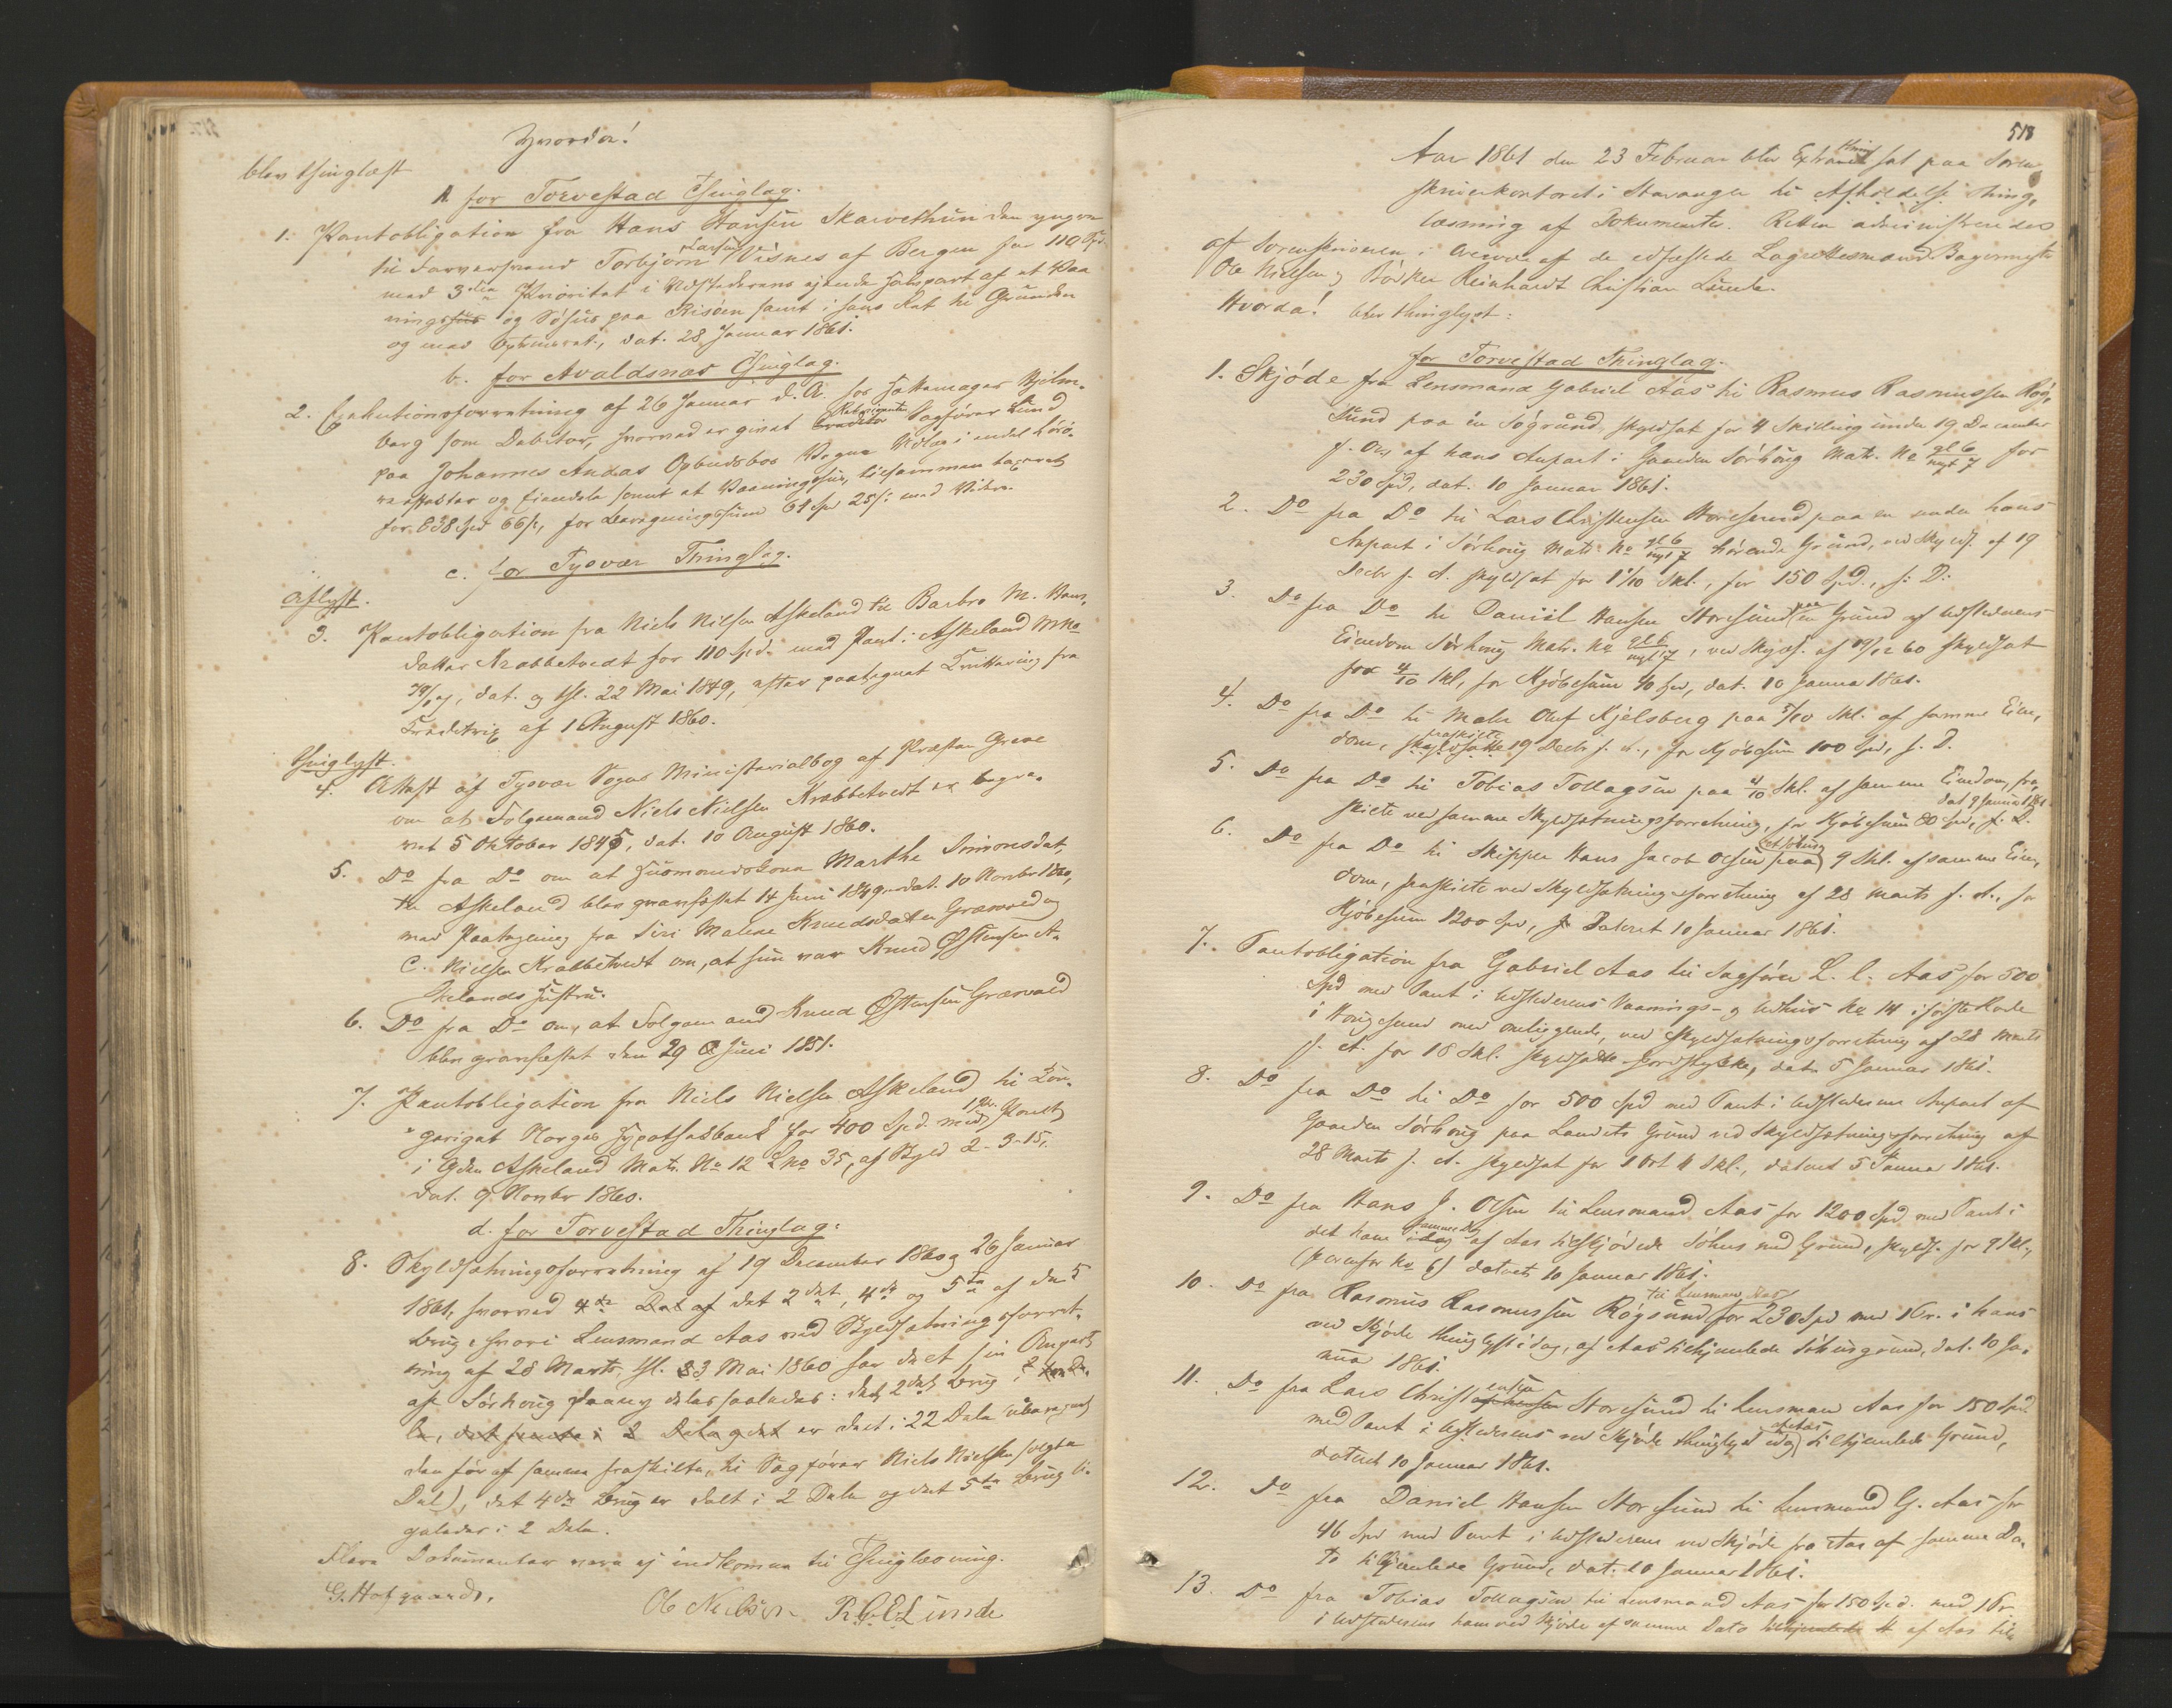 Hvorda!
blev thinglæst
A for Torvestad Thinglag.
1. Pantobligation fra Hans Hansen Skarvethun den yngre
til Farversvend Torbjørn Larsen Visnes af Bergen for 110 Spd.
med 3die Prioritet i Udstederens ejende Halvpart af et Vaa-
ningshus og Søhus paa Risøen samt i hans Ret til Grunden
og med Opteneret, dat. 28 Januar 1861.
b. for Avaldsnæs Thinglag.
2. Exekutionsforretning af 26 Januar d. A. hos Hattemager Hjelm-
berg som Debitor, hvorved er givet Creditor Rekvirenten Sagfører Lund
paa Johannes Andas Opbudsbos Vegne Udlæg i endel Løsø-
reeffekter og Eiendele samt et Vaaningshus, tilsammen taxeret
for 838 Spd 66 s, for Beregningssum 61 Spd 25 s: med Videre.
c. for Tysvær Thinglag.
Aflyst.
3. Pantobligation fra Niels Nilsen Askeland til Barbro M. Hans-
datter Krabbetvedt for 110 Spd. med Pant i Askeland M No
dat. og thl. 22 Mai 1849, efter paategnet Kvittering fra
Kreditrix af 1 August 1860.
Thinglyst.
4. Attest af Tysvær Sogns Ministerialbog af Præsten Greve
om at Folgemand Niels Nielsen Krabbetvedt er begra-
vet 5 Oktober 1845, dat. 10 August 1860.
5. Do fra Do om at Huusmandskone Marthe Simonsdat-
ter Askeland blev gravfæstet 14 Juni 1849, dat. 10 Novbr 1860,
med Paategning fra Siri Malene Knudsdatter Grævold og
C. Nielsen Krabbetvedt om, at hun var Knud Østensen A-
skelands Hustru.
6. Do fra Do om, at Folgemand Knud Østensen Grævold
blev gravfæstet den 29 Juni 1851.
7. Pantobligation fra Niels Nielsen Askeland til Kon-
geriget Norges Hypothekbank for 400 Spd. med 1 Pr. Pant
i Gden Askeland Matr. No 12 L No 35, af Skyld 2-3-15,
dat. 9 Novbr 1860.
d. for Torvestad Thinglag:
8. Skyldsætningsforretning af 19 December 1860 og 26 Januar
1861, hvorved 4de Del af det 2det, 4de og 5te af de 5
Brug, hvori Lensmand Aas ved Skyldsætningsforret-
ning af 28 Marts, thl. 23 Mai 1860 har delt sin Anpart
af Sørhoug Gaard, deles saaledes: det 2det Brug i 2 De-
le, det femte i 2 Dele og det er delt i 22 Dele (uberegnet
den før af samme fraskilte, til Sagfører Niels Nielsen solgte
Del), det 4de Brug er delt i 2 Dele og det 5te Brug li-
geledes i 2 Dele.
Flere Dokumenter vare ej indkomne til Thinglæsning.
G. Hofgaard. Ole Nielsen R. C. E. Lunde
513
Aar 1861 den 23 Februar blev Extrathing sat paa Soren-
skriverkontoret i Stavanger til Afholdelse thing-
læsning af Dokumenter. Retten administreredes
af Sorenskriveren i Overvær af de edfæstede Lagrettesmænd Bagermester
Ole Nielsen og Bødker Reinhardt Christian Lunde.
Hvorda! blev thinglyst:
for Torvestad Thinglag.
1. Skjøde fra Lensmand Gabriel Aas til Rasmus Rasmussen Røg-
sund paa en Søgrund, skyldsat for 4 Skilling under 19 December
f. Aar, af hans Anpart i Gaarden Sørhoug Matr. No gl 6 / nyt 7 for
230 Spd, dat. 10 Januar 1861.
2. Do fra Do til Lars Christensen Storesund paa en under hans
Anpart i Sørhoug Matr. No gl 6 / nyt 7 hørende Grund, ved Skyldf. af 19
Decbr f. A. skyldsat for 1 1/10 Skl., for 150 Spd., s: D:
3. Do fra Do til Daniel Hansen Storesund paa en Grund af Udstederens
Eiendom Sørhoug Matr. No gl 6 / nyt 7, ved Skyldf. af 19/12 60 skyldsat
for 4/10 Skl., for Kjøbesum 40 Spd, dat. 10 Januar 1861.
4. Do fra Do til Maler Oluf Kjelsberg paa 5/10 Skl. af samme Eien-
dom, skyldsatte fraskilt 19 Decbr f. A., for Kjøbesum 100 Spd, s. D.
5. Do fra Do til Tobias Tollagsen paa 4/10 Skl. af samme Eiendom, fra-
skilt ved samme Skyldsætningsforretning, for Kjøbesum 80 Spd, s. D. dat. 9 Januar 1861
6. Do fra Do til Skipper Hans Jacob Olsen paa et Søhus 9 Skl. af samme Eien-
dom, fraskilt ved Skyldsætningsforretning af 28 Marts f. A., for
Kjøbesum 1200 Spd, Dateret 10 Januar 1861.
7. Pantobligation fra Gabriel Aas til Sagfører L. C. Aas for 500
Spd med Pant i Udstederens Vaanings- og Udhus No 14 i første Rode
i Hougesund med omliggende, ved Skyldsætningsforretning af 28 Marts
f. A. for 18 Skl. skyldsatte Jordstykke, dat. 5 Januar 1861.
8. Do fra Do til Do for 500 Spd med Pant i Udstederens Anpart af
Gaarden Sørhoug paa Landets Grund ved Skyldsætningsforretning af
28 Marts f. A. skyldsat for 1 Ort 4 Skl., dateret 5 Januar 1861.
9. Do fra Hans J. Olsen til Lensmand Aas for 1200 Spd. med Pant i
det ham idag samme Dag af Aas tilskjødede Søhus med Grund, skylds. for 9 Skl.,
(se ovenfor No 6) dateret 10 Januar 1861.
10. Do fra Rasmus Rasmussen Røgsund til Lensmand Aas for 230 Spd med 1 Pr. i hans
ved Skjøde thinglyst i dag, af Aas tilhjemlede Søhusgrund, dat. 10 Ja-
nuar 1861.
11. Do fra Lars Christensen Storesund til Lensmand Aas for 150 Spd
med Pant i Udstederens ved Skjøde thinglyst idag tilhjemlede Grund,
dateret 10 Januar 1861.
12. Do fra Daniel Hansen Storesund til Lensmand G. Aas for
46 Spd med Pant i Udstederens ved Skjøde fra Aas af samme Da-
to tilhjemlede Grund, dat. 10 Januar 1861.
13. Do fra Tobias Tollagsen til Lensmand Aas for 150 Spd. med 1 Pr
i Udstederens ham ved Skjøde af samme Dato tilhjemlede af Aas til-